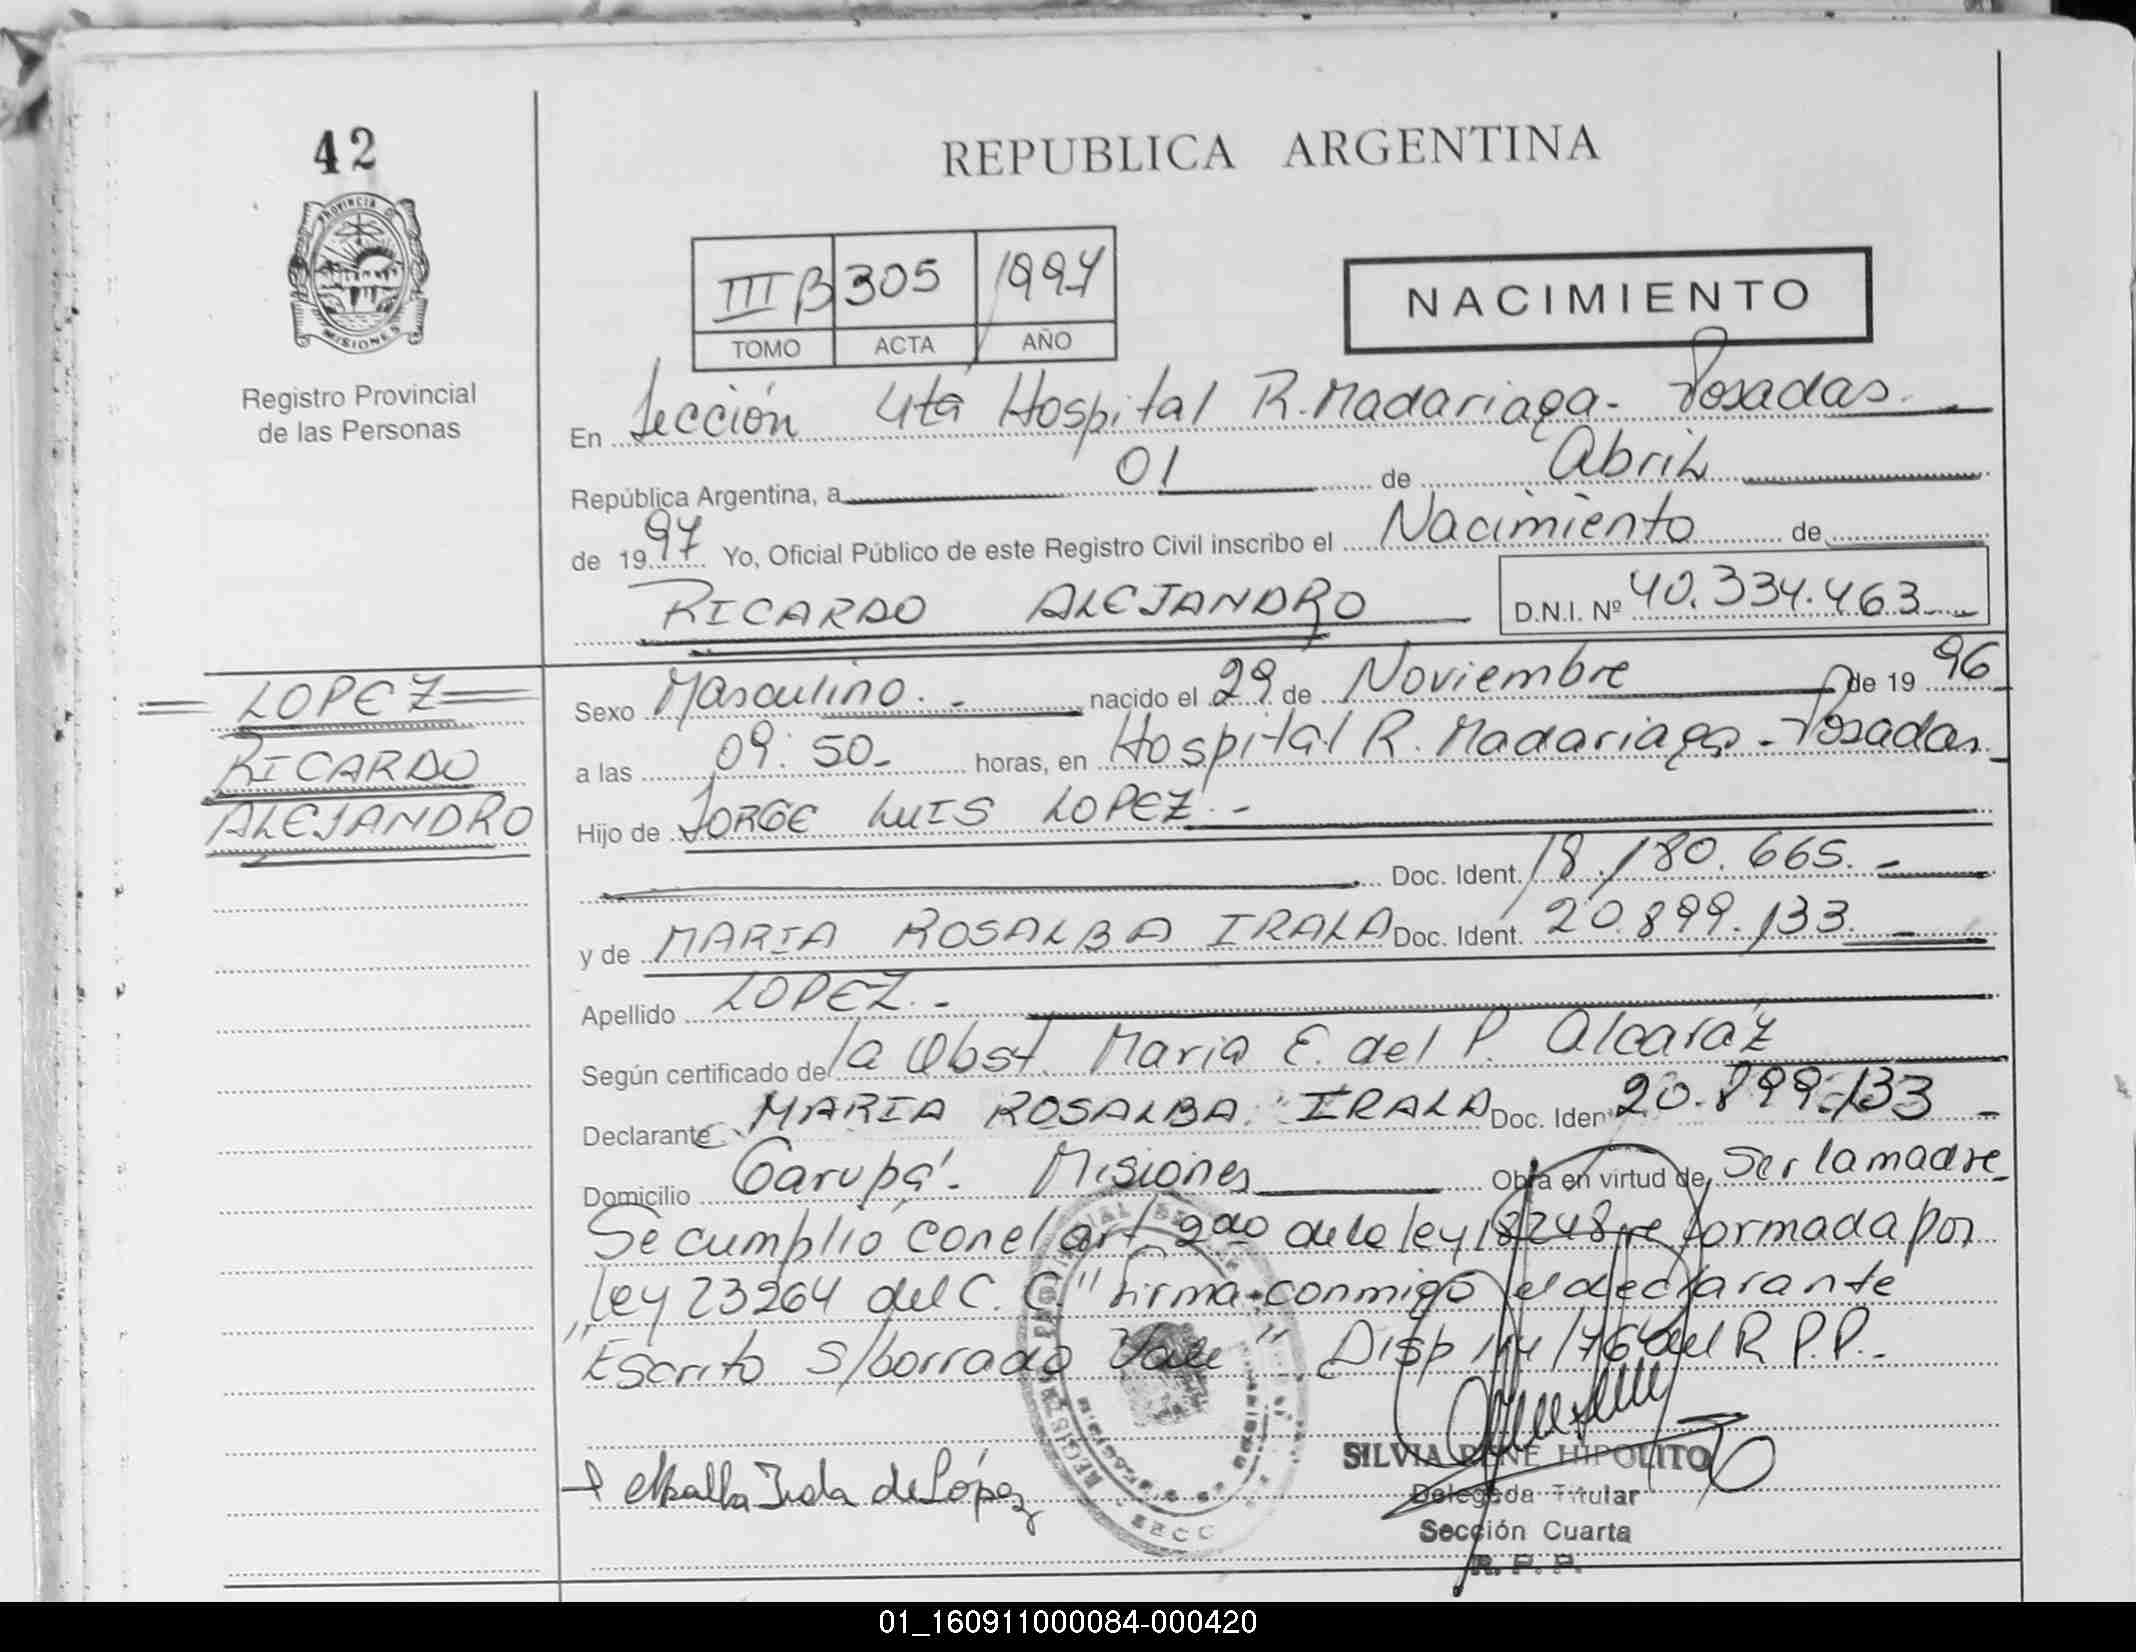 42
PROVINCIA DE
MISIONES
Registro Provincial
de las Personas
REPUBLICA ARGENTINA
III B 305 1997
TOMO ACTA AÑO
NACIMIENTO
En Sección 4ta Hospital R. Madariaga - Posadas.
República Argentina, a 01 de Abril
de 1997 Yo, Oficial Público de este Registro Civil inscribo el Nacimiento de
RICARDO ALEJANDRO D.N.I. Nº 40.334.463
LOPEZ
RICARDO
ALEJANDRO
Sexo Masculino. - nacido el 29 de Noviembre de 1996
a las 09:50 - horas, en Hospital R. Madariaga - Posadas
Hijo de JORGE LUIS LOPEZ. -
Doc. Ident. 18.180.665. -
y de MARIA ROSALBA IRALA Doc. Ident. 20.899.133. -
Apellido LOPEZ. -
Según certificado de la Obst. Maria E. del P. Alcaráz
Declarante MARIA ROSALBA IRALA Doc. Iden 20.899.133 -
Domicilio Garupá - Misiones Obra en virtud de Ser la madre
Se cumplió con el art 2do de la ley 18248 reformada por
ley 23264 del C. C. "firma conmigo el declarante
"Escrito s/borrado Vale" Disp 114/76 del R.P.P. -
Irala de López
SILVIA RENE HIPOLITO
Delegada Titular
Sección Cuarta
R. P. P.
01_160911000084-000420